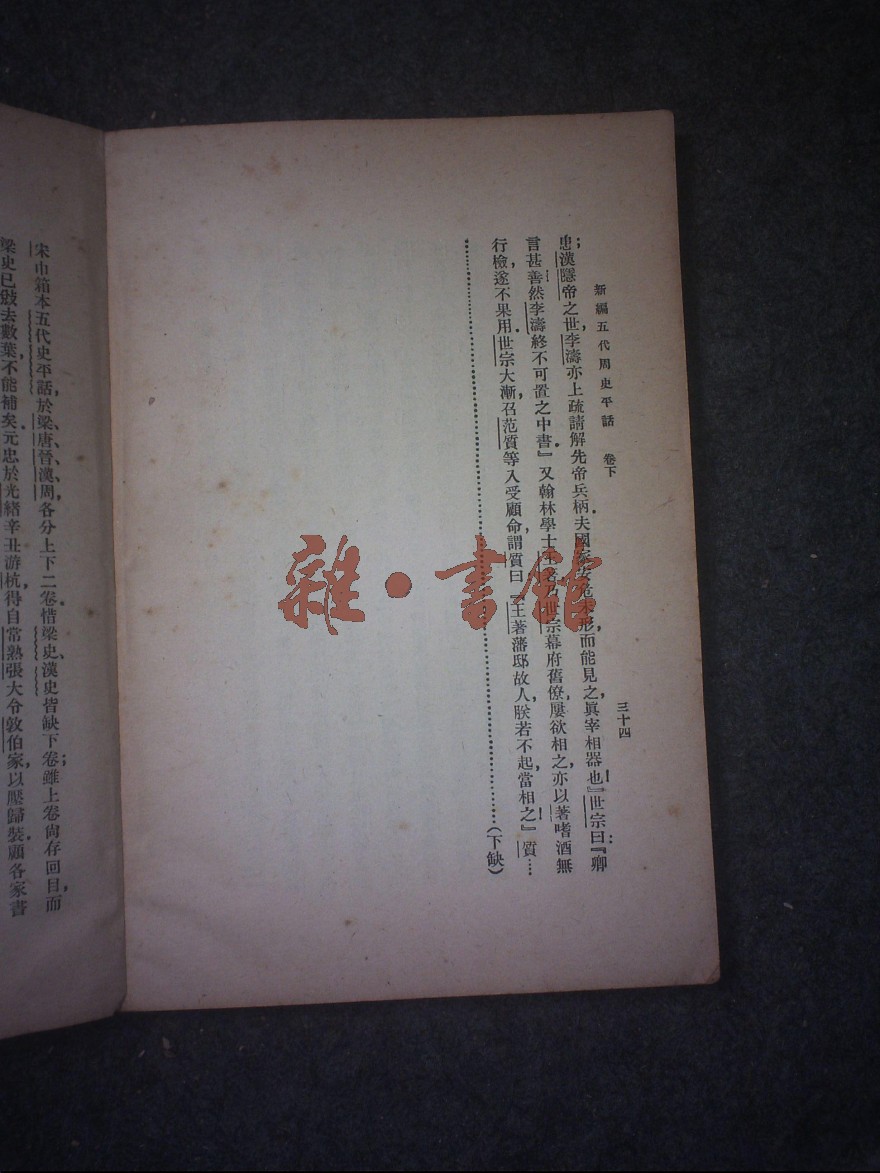 新編五代周史平話　卷下
三十四
患；漢隱帝之世，李濤亦上疏請解先帝兵柄。夫國家安危未形，而能見之，眞宰相器也！』世宗曰：『卿
言甚善，然李濤終不可置之中書。』又翰林學士王著乃世宗幕府舊僚，屢欲相之，亦以著嗜酒無
行檢，遂不果用。世宗大漸，召范質等入受顧命，謂質曰『王著藩邸故人，朕若不起，當相之！』質……
……（下缺）
宋巾箱本五代史平話，於梁、唐、晉、漢、周，各分上下二卷。惜梁史、漢史皆缺下卷；雖上卷尙存回目，而
梁史已敓去數葉，不能補矣。元忠於光緒辛丑游杭，得自常熟張大令敦伯家，以壓歸裝。顧各家書
雜·書館